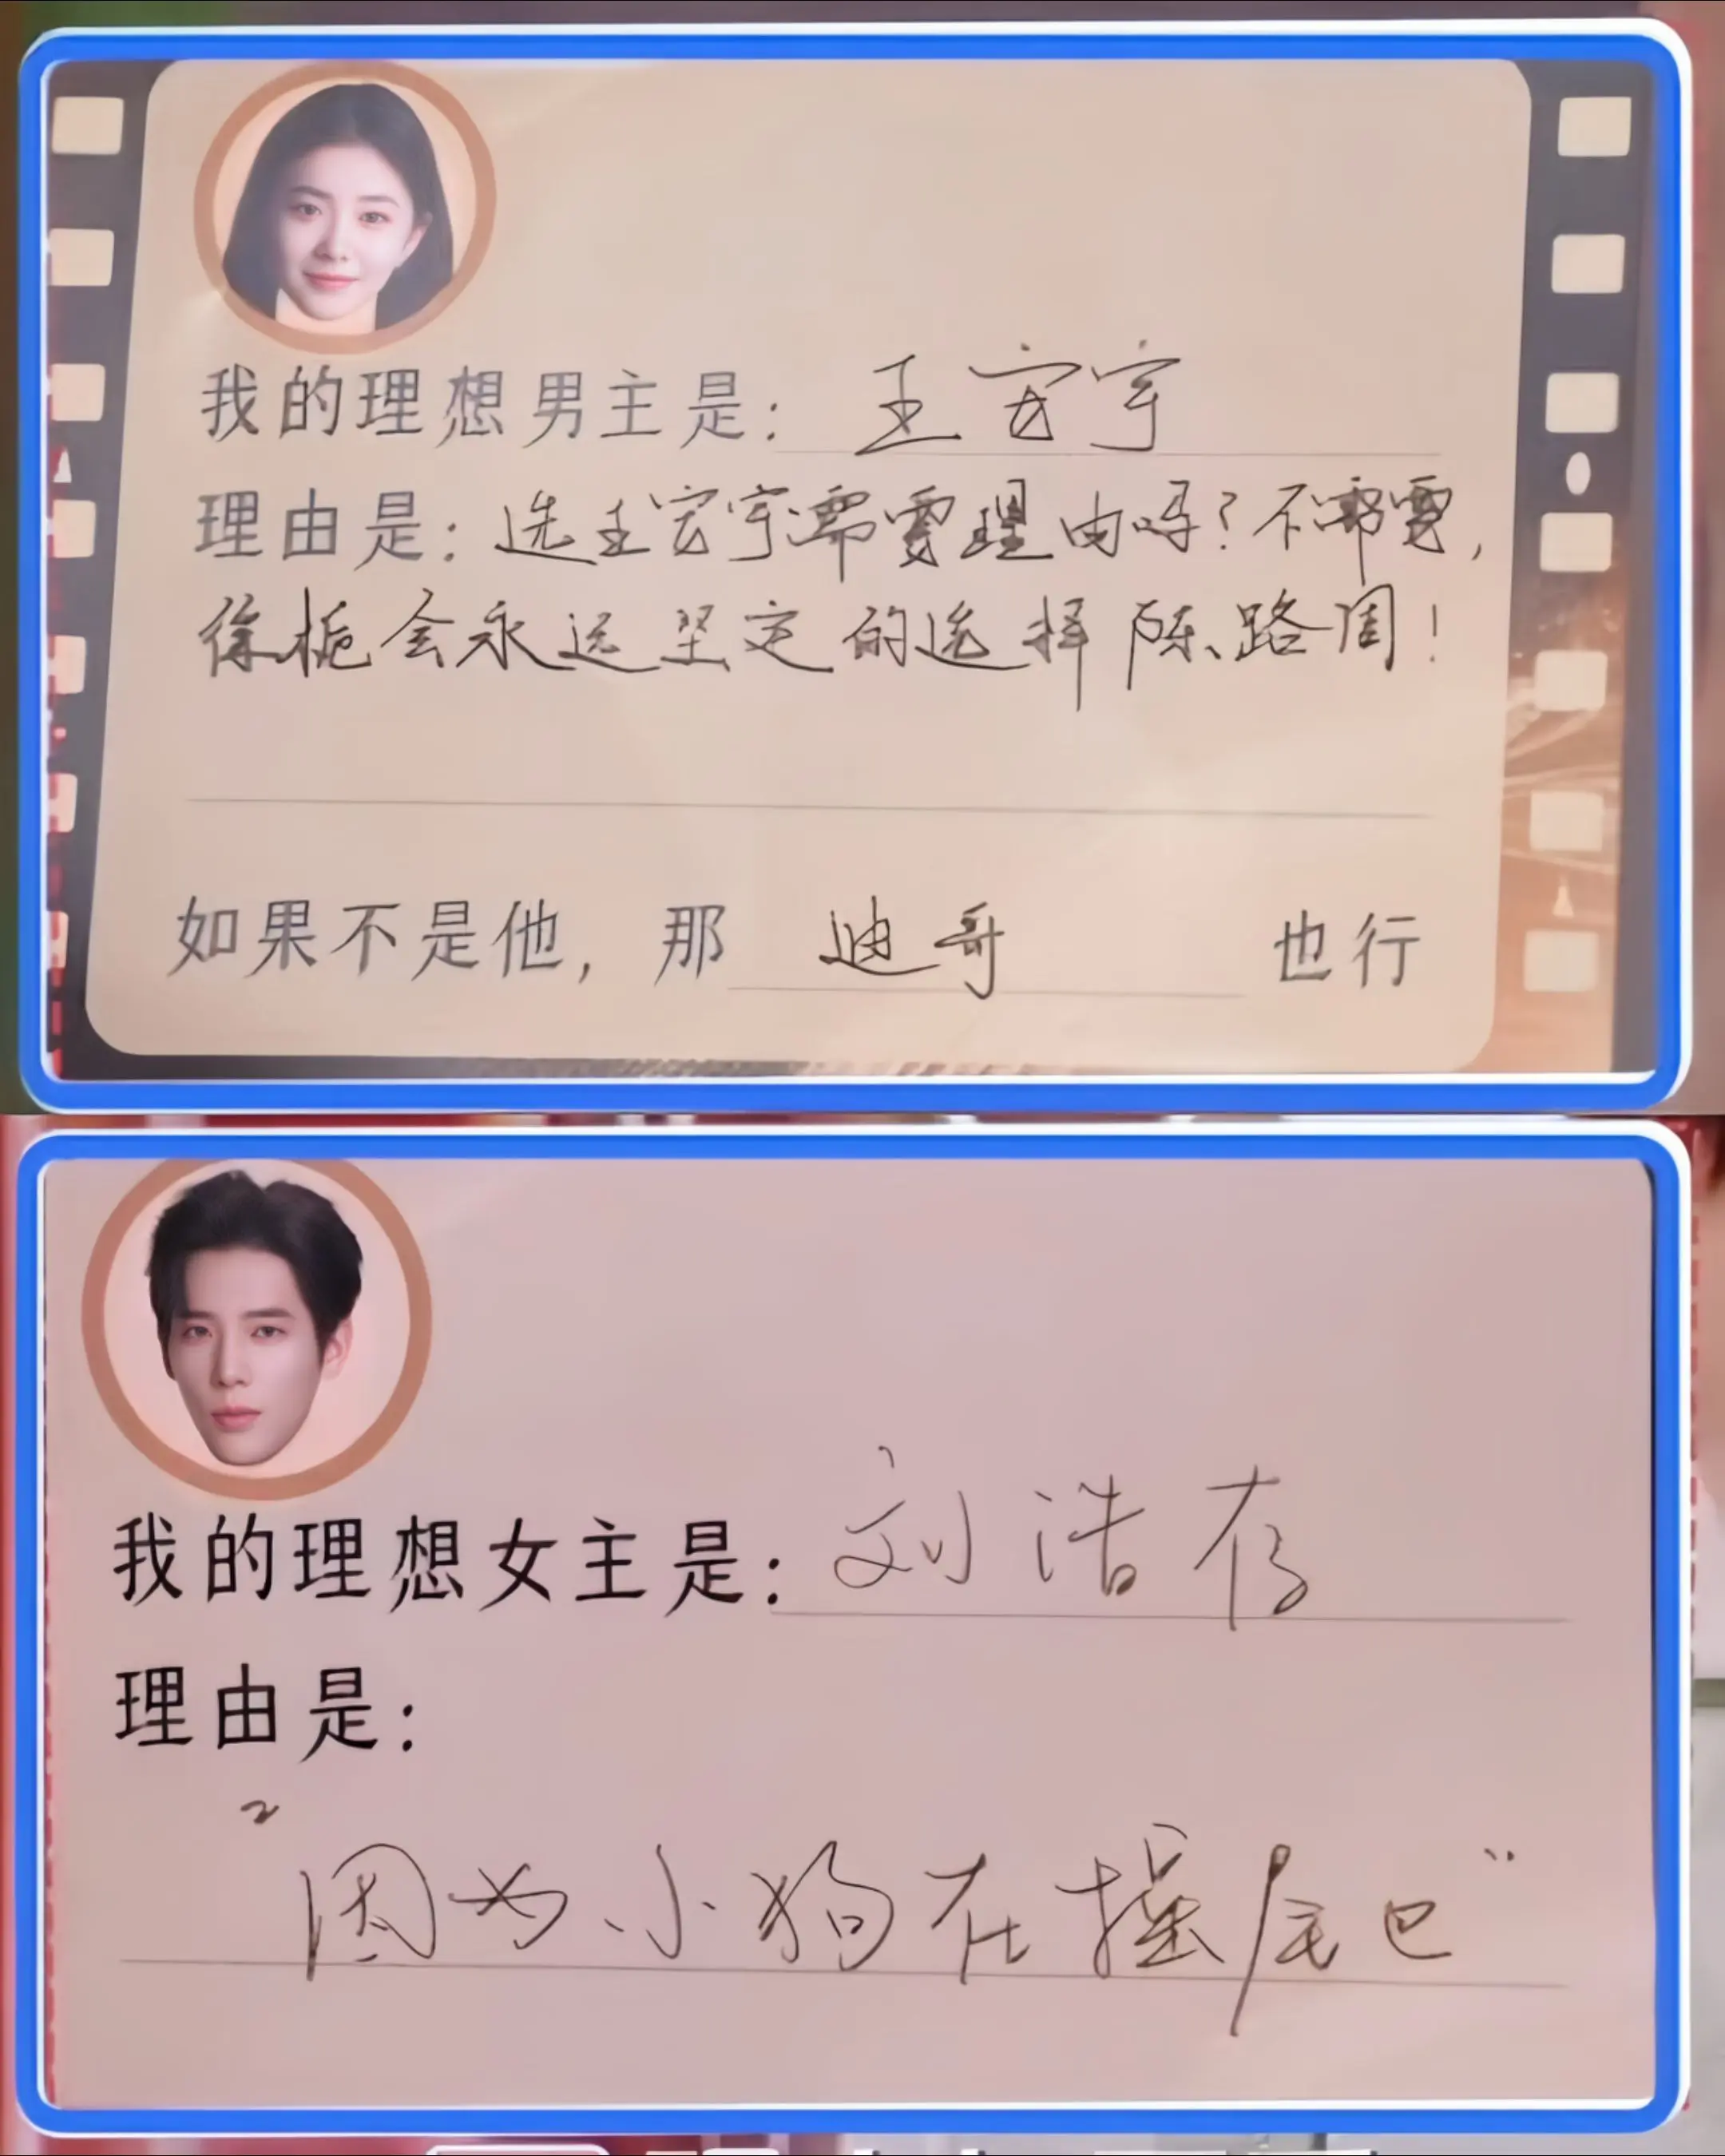 我的理想男主是：王宏宇
理由是：选王宏宇需要理由吗？不需要，
徐栀会永远坚定的选择陈路周！
如果不是他，那 迪哥 也行
我的理想女主是：刘浩存
理由是：
“因为小狗在摇尾巴”